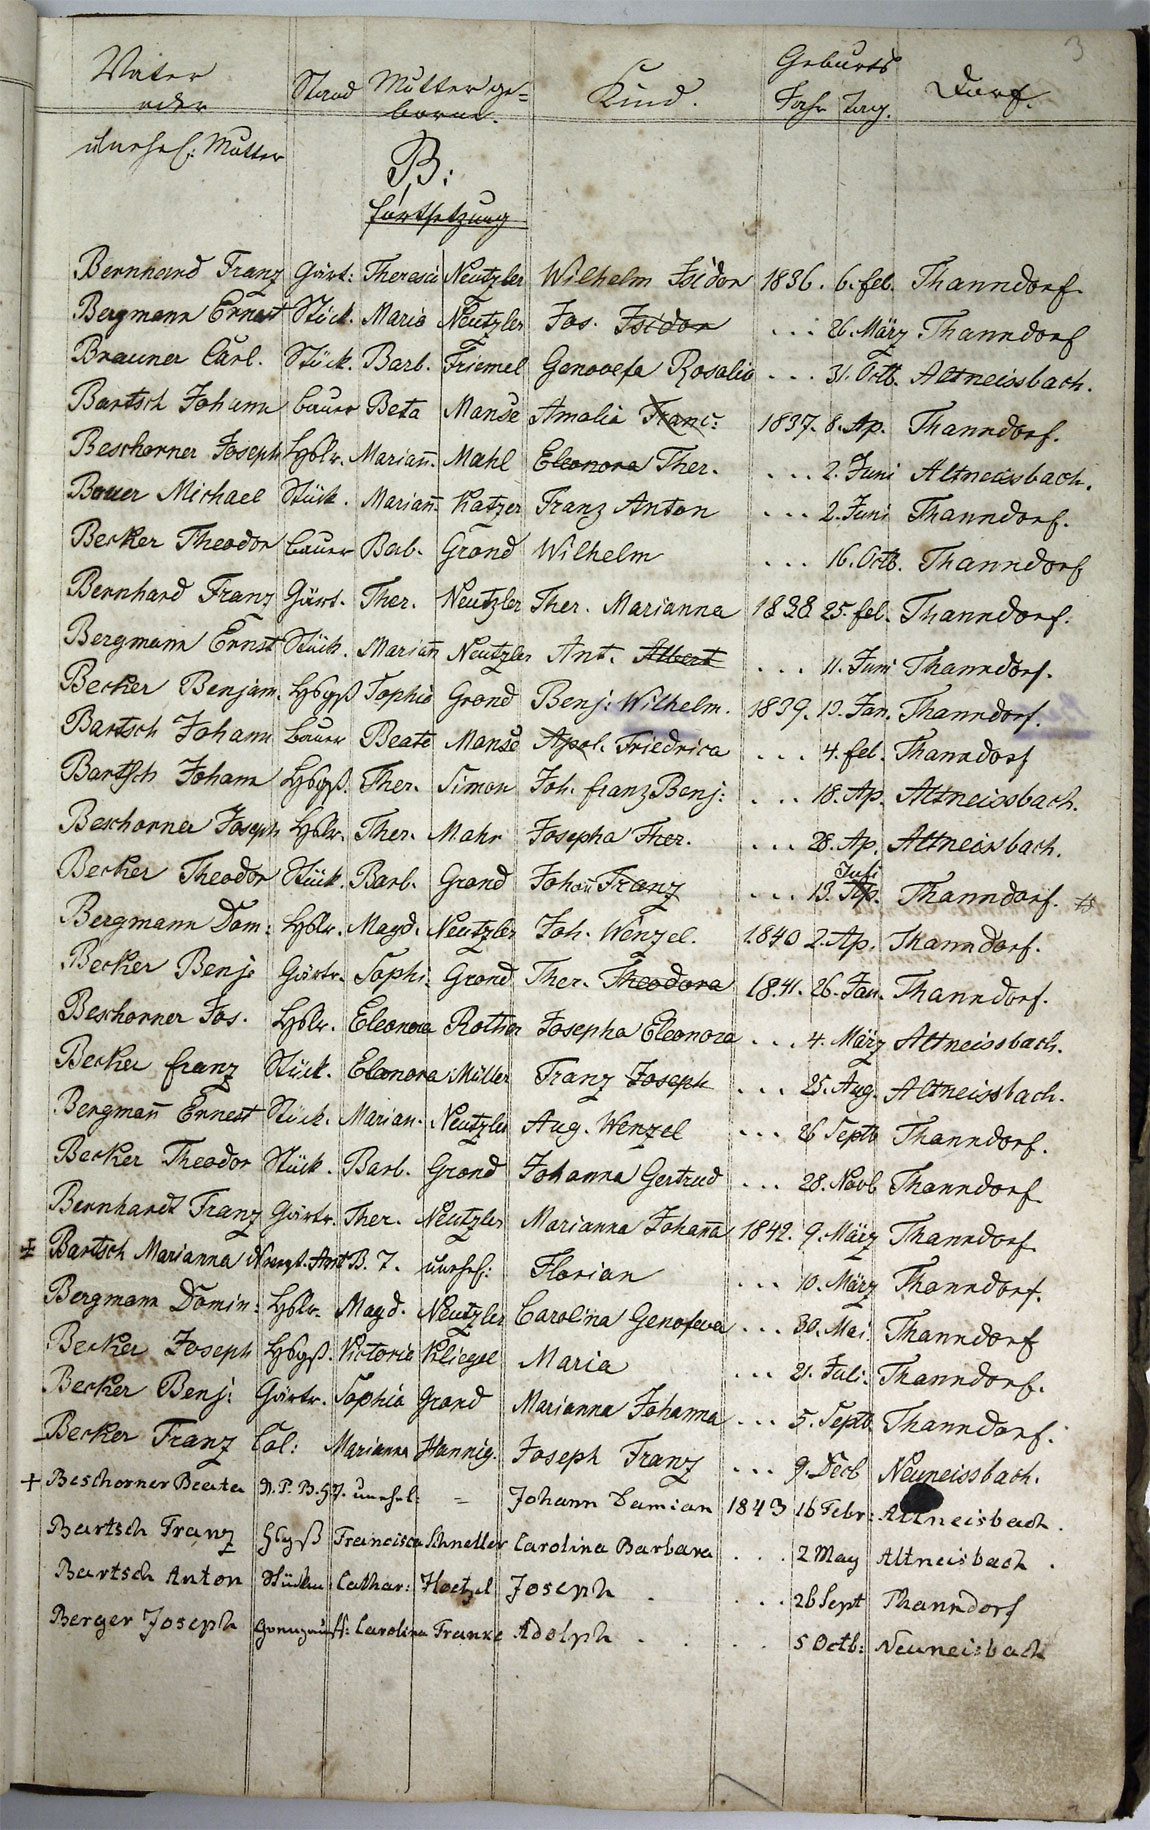 3
Vater oder unehel: Mutter | Stand | Mutter ge= borne. | Kind. | Geburts Jahr Tag. | Dorf.
B:
fortsetzung
Bernhard Franz Gärt: Theresia Neutzler Wilhelm Isidor 1836. 6. feb. Thanndorf.
Bergmann Ernest Stück. Maria Neutzler Jos. Isidor ... 26. März Thanndorf
Brauner Carl. Stück. Barb. Friemel Genovefa Rosalia ... 31. Octb. Altneissbach.
Bartsch Johann bauer Beta Manse Amalia Franc: 1837. 8. Ap. Thanndorf.
Beschorner Joseph Hblr. Mariañ. Mahl Eleonora Ther. ... 2. Juni Altneissbach.
Bauer Michael Stück. Mariañ Katzer Franz Anton ... 2. Juni Thanndorf.
Becker Theodor bauer Barb. Grond Wilhelm ... 16. Octb. Thanndorf
Bernhard Franz Gärt. Ther. Neutzler Ther. Marianna 1838 25. feb. Thanndorf.
Bergmann Ernst Stück. Mariañ Neutzler Ant. Albert ... 11. Juni Thanndorf.
Becker Benjam. Hbgß Sophia Grond Benj: Wilhelm. 1839. 13. Jan. Thanndorf.
Bartsch Johann bauer Beate Manse Apol. Friedrica ... 4. feb. Thanndorf
Bartsch Johann Hbgß. Ther. Simon Joh. franz Benj: ... 18. Ap. Altneissbach.
Beschorner Joseph Hblr. Ther. Mahr Josepha Ther. ... 28. Ap. Altneissbach.
Becker Theodor Stück. Barb. Grond Johañ Franz ... 13. Ap. Juli Thanndorf.
Bergmann Dom: Hblr. Magd. Neutzler Joh. Wenzel. 1840 2. Ap. Thanndorf.
Becker Benj: Gärtr. Sophi: Grond Ther. Theodora 1841. 26. Jan. Thanndorf.
Beschorner Jos. Hblr. Eleonora Rother Josepha Eleonora ... 4. März Altneissbach.
Becker franz Stück. Eleonora Müller Franz Joseph ... 25. Aug. Altneissbach.
Bergmañ Ernest Stück. Marian. Neutzler Aug. Wenzel ... 26 Septb Thanndorf.
Becker Theodor Stück. Barb. Grond Johanna Gertrud ... 28. Novb Thanndorf.
Bernhardt Franz Gärtr. Ther. Neutzler Marianna Johaña 1842. 9. März Thanndorf.
Bartsch Marianna B. 7. unehel: Florian ... 10. März Thanndorf.
Bergmann Domin: Hblr. Magd. Neutzler Carolina Genofeva ... 30. Mai. Thanndorf
Becker Joseph Hbgß. Victoria Kliegel Maria ... 21. Juli. Thanndorf.
Becker Benj: Gärtr. Sophia Grond Marianna Johanna ... 5. Septb. Thanndorf.
Becker Franz Col: Marianna Hannig. Joseph Franz ... 9. Decb Neuneissbach.
+ Beschorner Beata N. P. B. 57. unehel: = Johann Damian 1843 16 Febr: Altneisbach.
Bartsch Franz Hbgß Francisca Schneller Carolina Barbara ... 2 May Altneisbach.
Bartsch Anton Stückm: Cathar: Hoetzel Joseph ... 26 Sept Thanndorf
Berger Joseph Carolina Franke Adolph ... 5 Octb: Neuneisbach